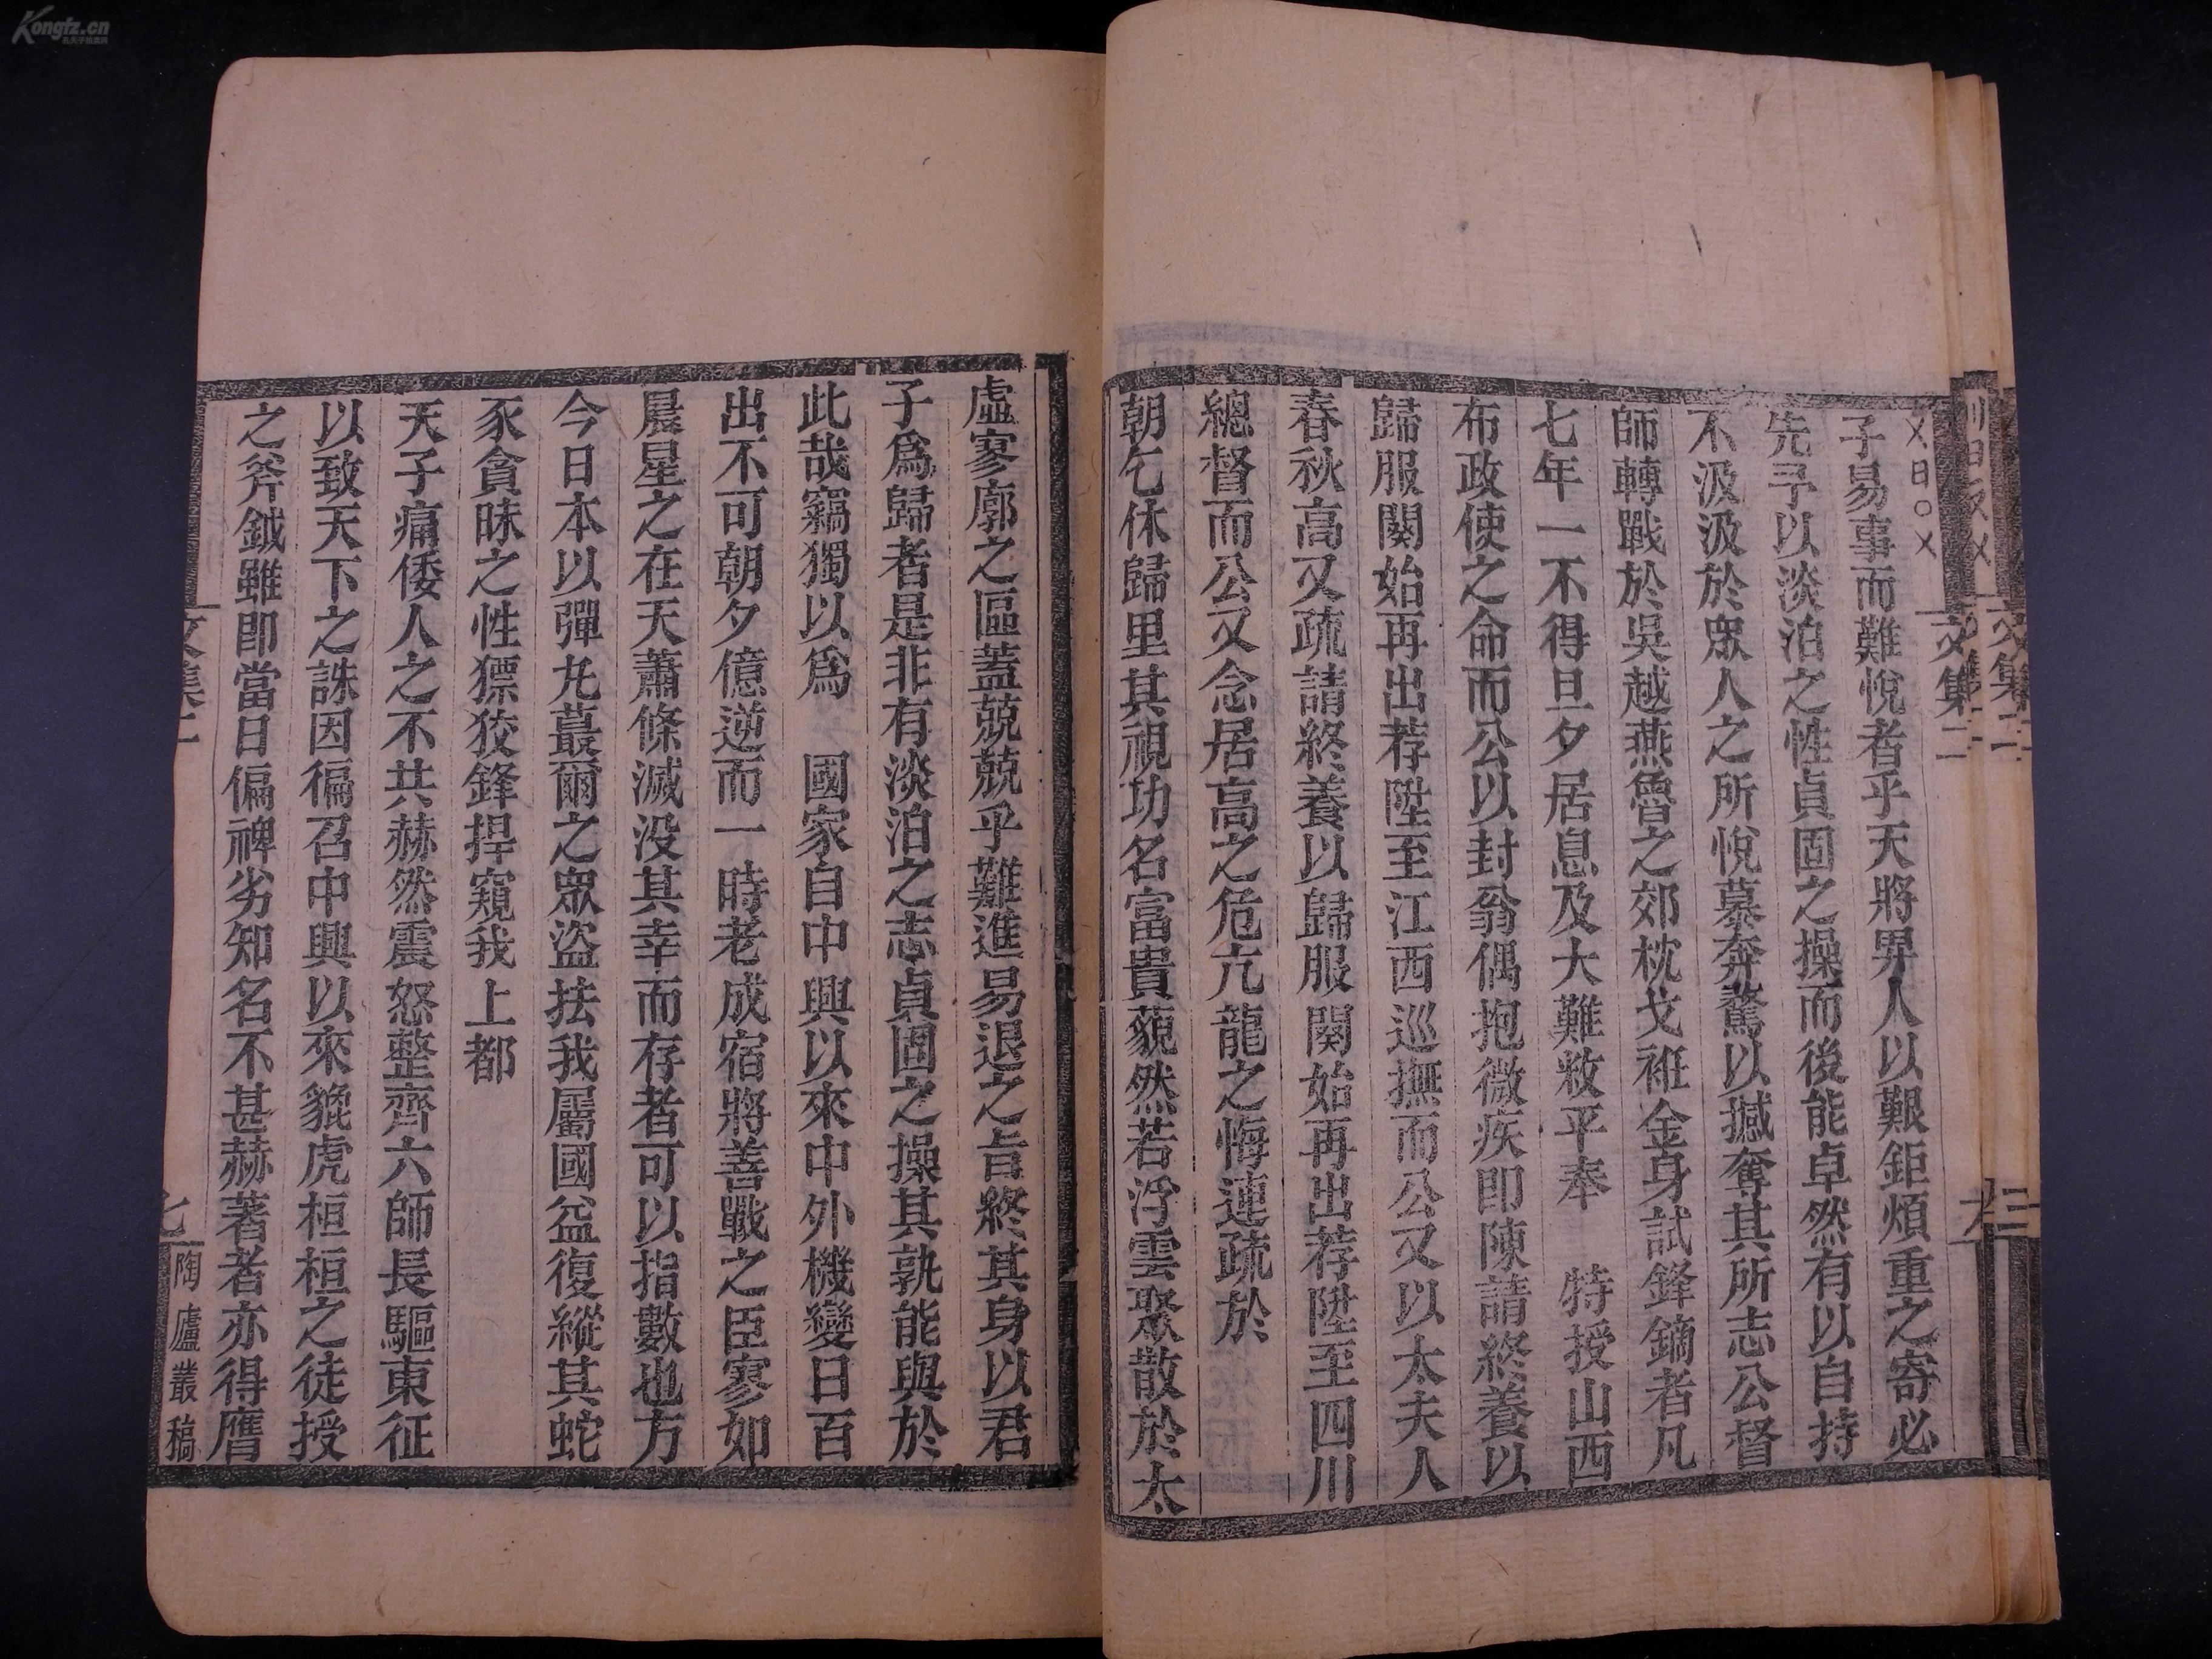 子易事而難悅者乎天將畀人以艱鉅煩重之寄必
先予以淡泊之性貞固之操而後能卓然有以自持
不汲汲於眾人之所悅慕奔騖以撼奪其所志公督
師轉戰於吳越燕魯之郊枕戈袵金身試鋒鏑者凡
七年一不得旦夕居息及大難敉平奉 特授山西
布政使之命而公以封翁偶抱微疾即陳請終養以
歸服闋始再出荐陞至江西巡撫而公又以太夫人
春秋高又疏請終養以歸服闋始再出荐陞至四川
總督而公又念居高之危亢龍之悔連疏於
朝乞休歸里其視功名富貴藐然若浮雲聚散於太
虛寥廓之區蓋兢兢乎難進易退之旨終其身以君
子爲歸者是非有淡泊之志貞固之操其孰能與於
此哉竊獨以爲 國家自中興以來中外機變日百
出不可朝夕億逆而一時老成宿將善戰之臣寥如
晨星之在天蕭條滅没其幸而存者可以指數也方
今日本以彈丸蕞爾之眾盜抾我屬國益復縱其蛇
豕貪昧之性獷狡鋒捍窺我上都
天子痛倭人之不共赫然震怒整齊六師長驅東征
以致天下之誅因徧召中興以來貔虎桓桓之徒授
之斧鉞雖即當日偏裨劣知名不甚赫著者亦得膺
文集二
七
陶廬叢稿
文集二
Kongfz.cn